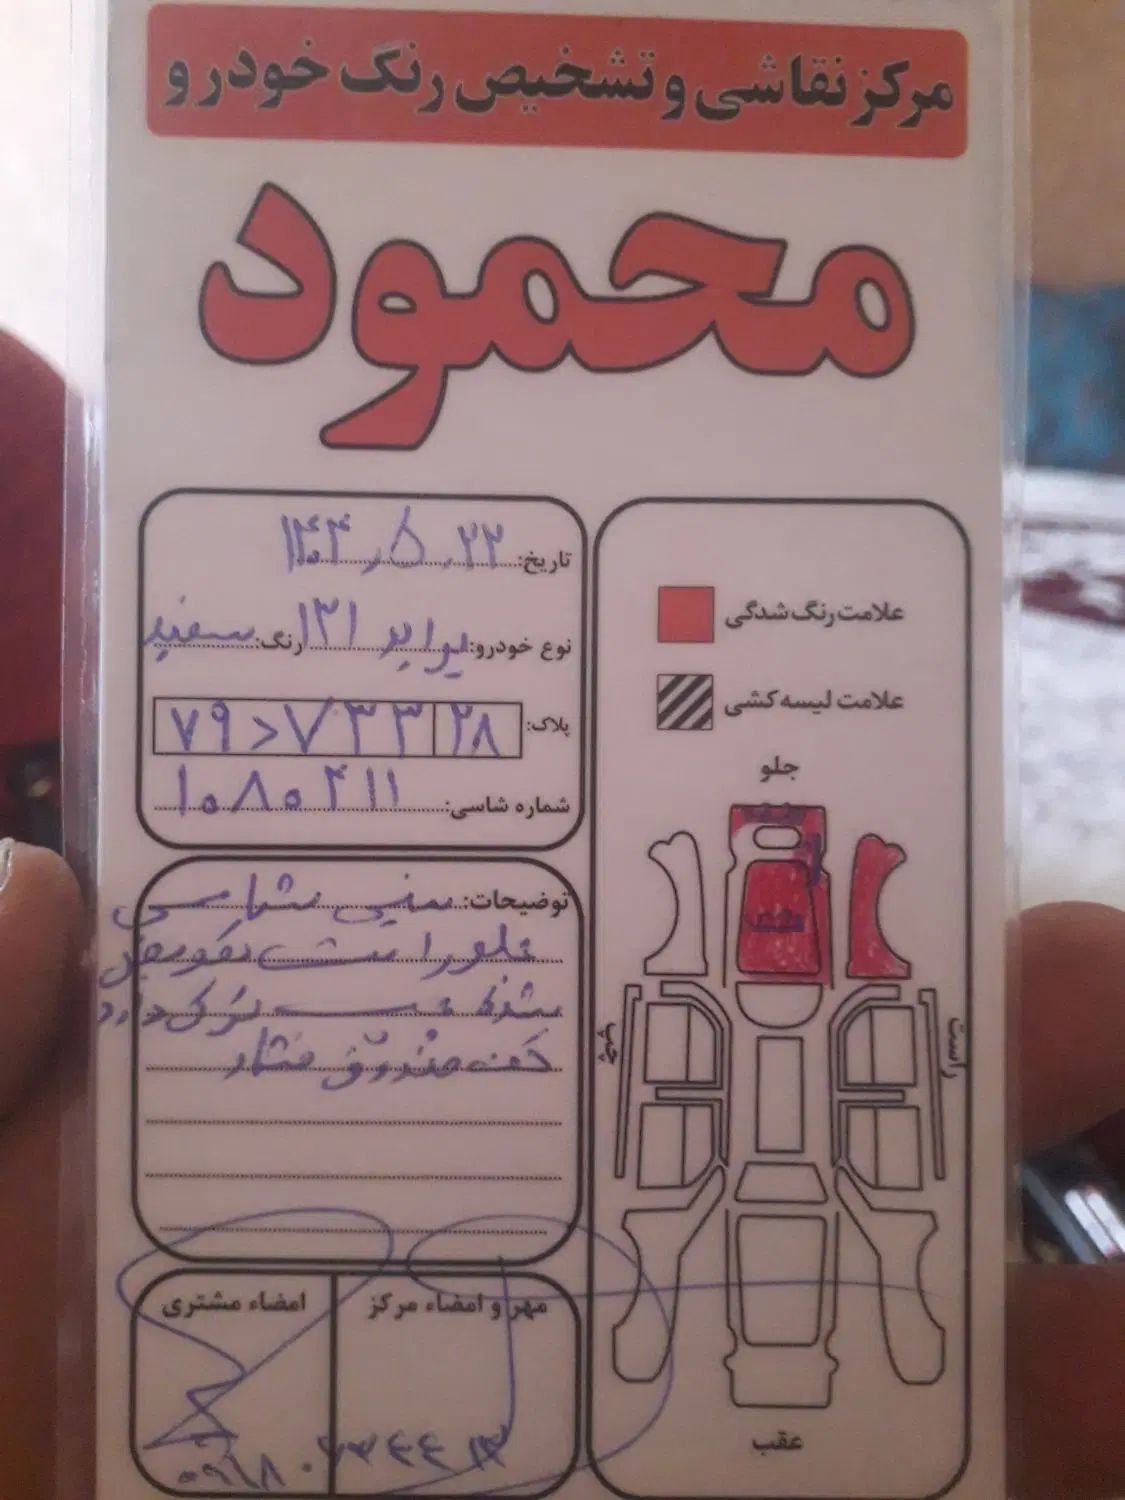 مرکز نقاشی و تشخیص رنگ خودرو
محمود
تاریخ: ۱۴۰۴٫۵٫۲۲
نوع خودرو: پراید ۱۳۱ رنگ: سفید
پلاک:
شماره شاسی: ۱۰۸۰۴۱۱
توضیحات: سینی شاسی
جلو راست تعویض
شده
کف صندوق فشار
مهر و امضاء مرکز
امضاء مشتری
علامت رنگ شدگی
علامت لیسه کشی
جلو
چپ
راست
عقب